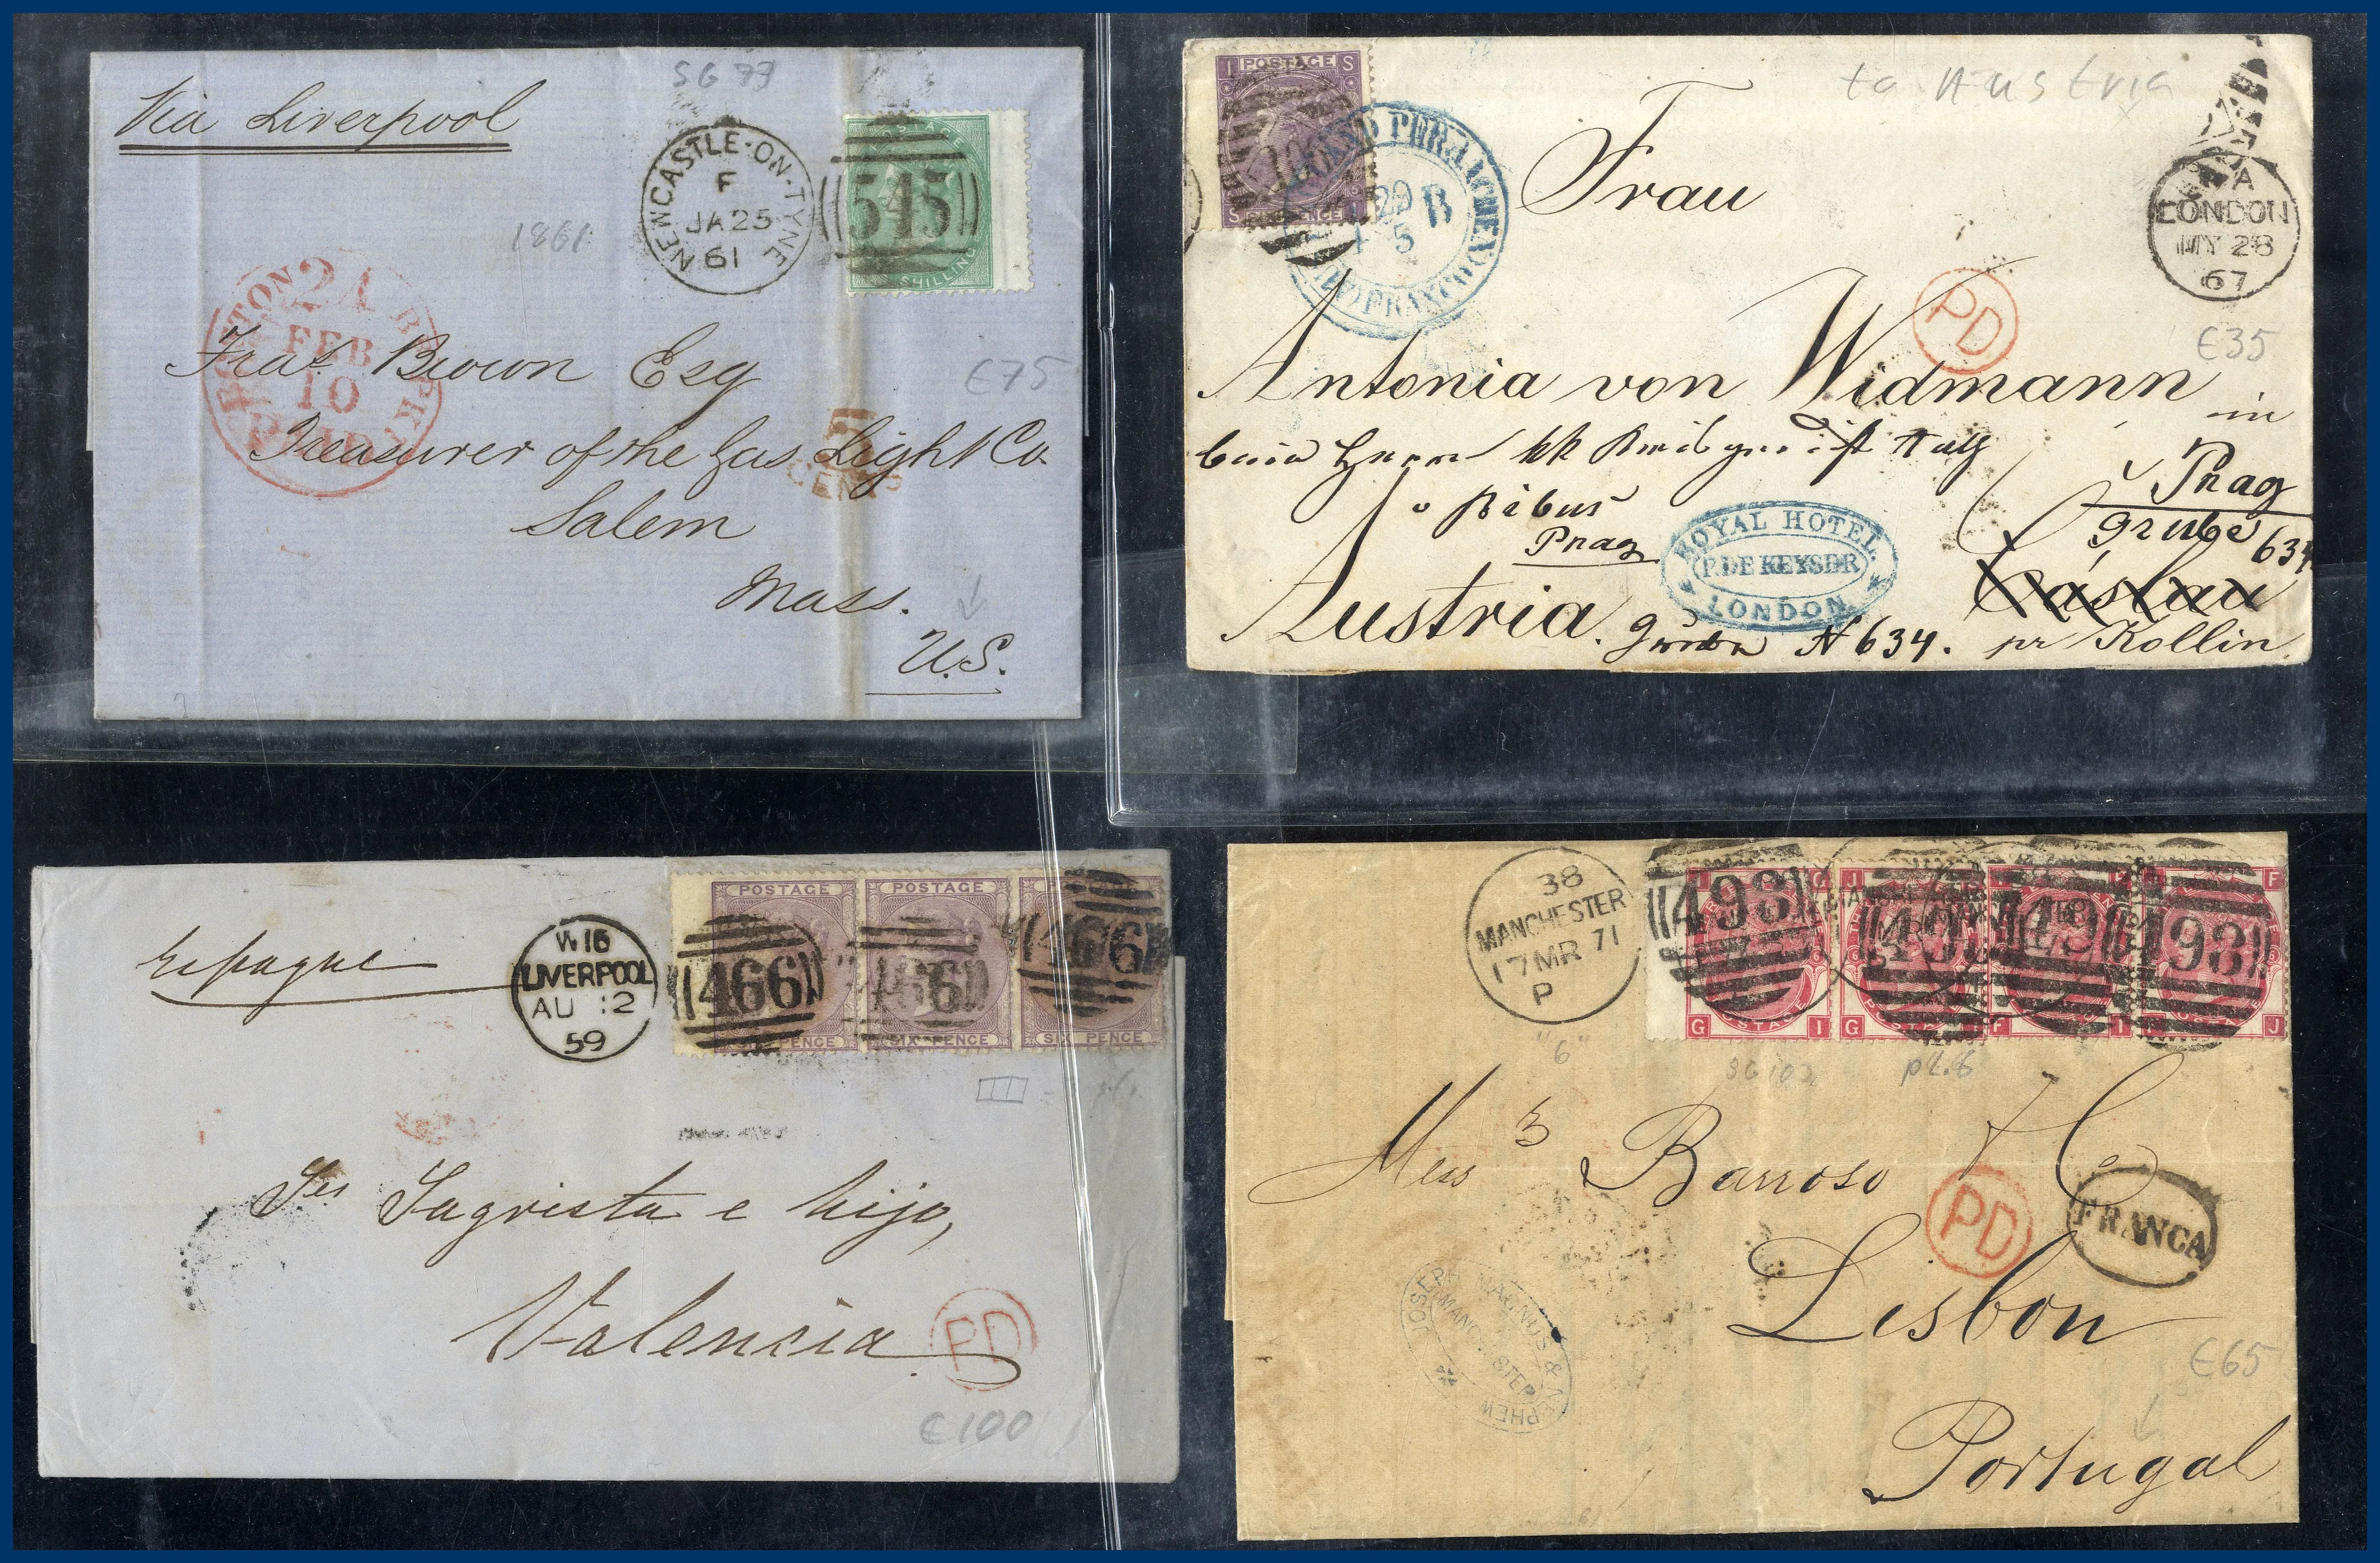 Via Liverpool
SG 73
1861
NEWCASTLE-ON-TYNE
F
JA 25
61
545
SHILLING
BOSTON BR. PKT
24
FEB
10
PAID
Fras. Brown Esq
€75
Treasurer of the Gas Light Co.
5
CENTS
Salem
Mass.
U.S.
I POSTAGE S
S SIX PENCE I
29 B
5
to Austria
Frau
LONDON
MY 28
67
PD
€35
Antonia von Widmann
in
Prag
Grube 634
v Bibus
Prag
ROYAL HOTEL
P. DE KEYSER
LONDON
Čáslau
Austria.
N 634.
pr Kollin
Espagne
W 16
LIVERPOOL
AU 12
59
POSTAGE POSTAGE
466 466 466
SIX PENCE SIX PENCE SIX PENCE
Srs Sagrista e hijo,
Valencia
PD
€100
38
MANCHESTER
17 MR 71
P
498 498 498 498
G POSTAGE I G F I J
"6"
SG 103
pl. 6
Messrs Barroso & Co
PD
FRANCA
Lisbon
JOSEPH MAGNUS & NEPHEW
MANCHESTER
€65
Portugal